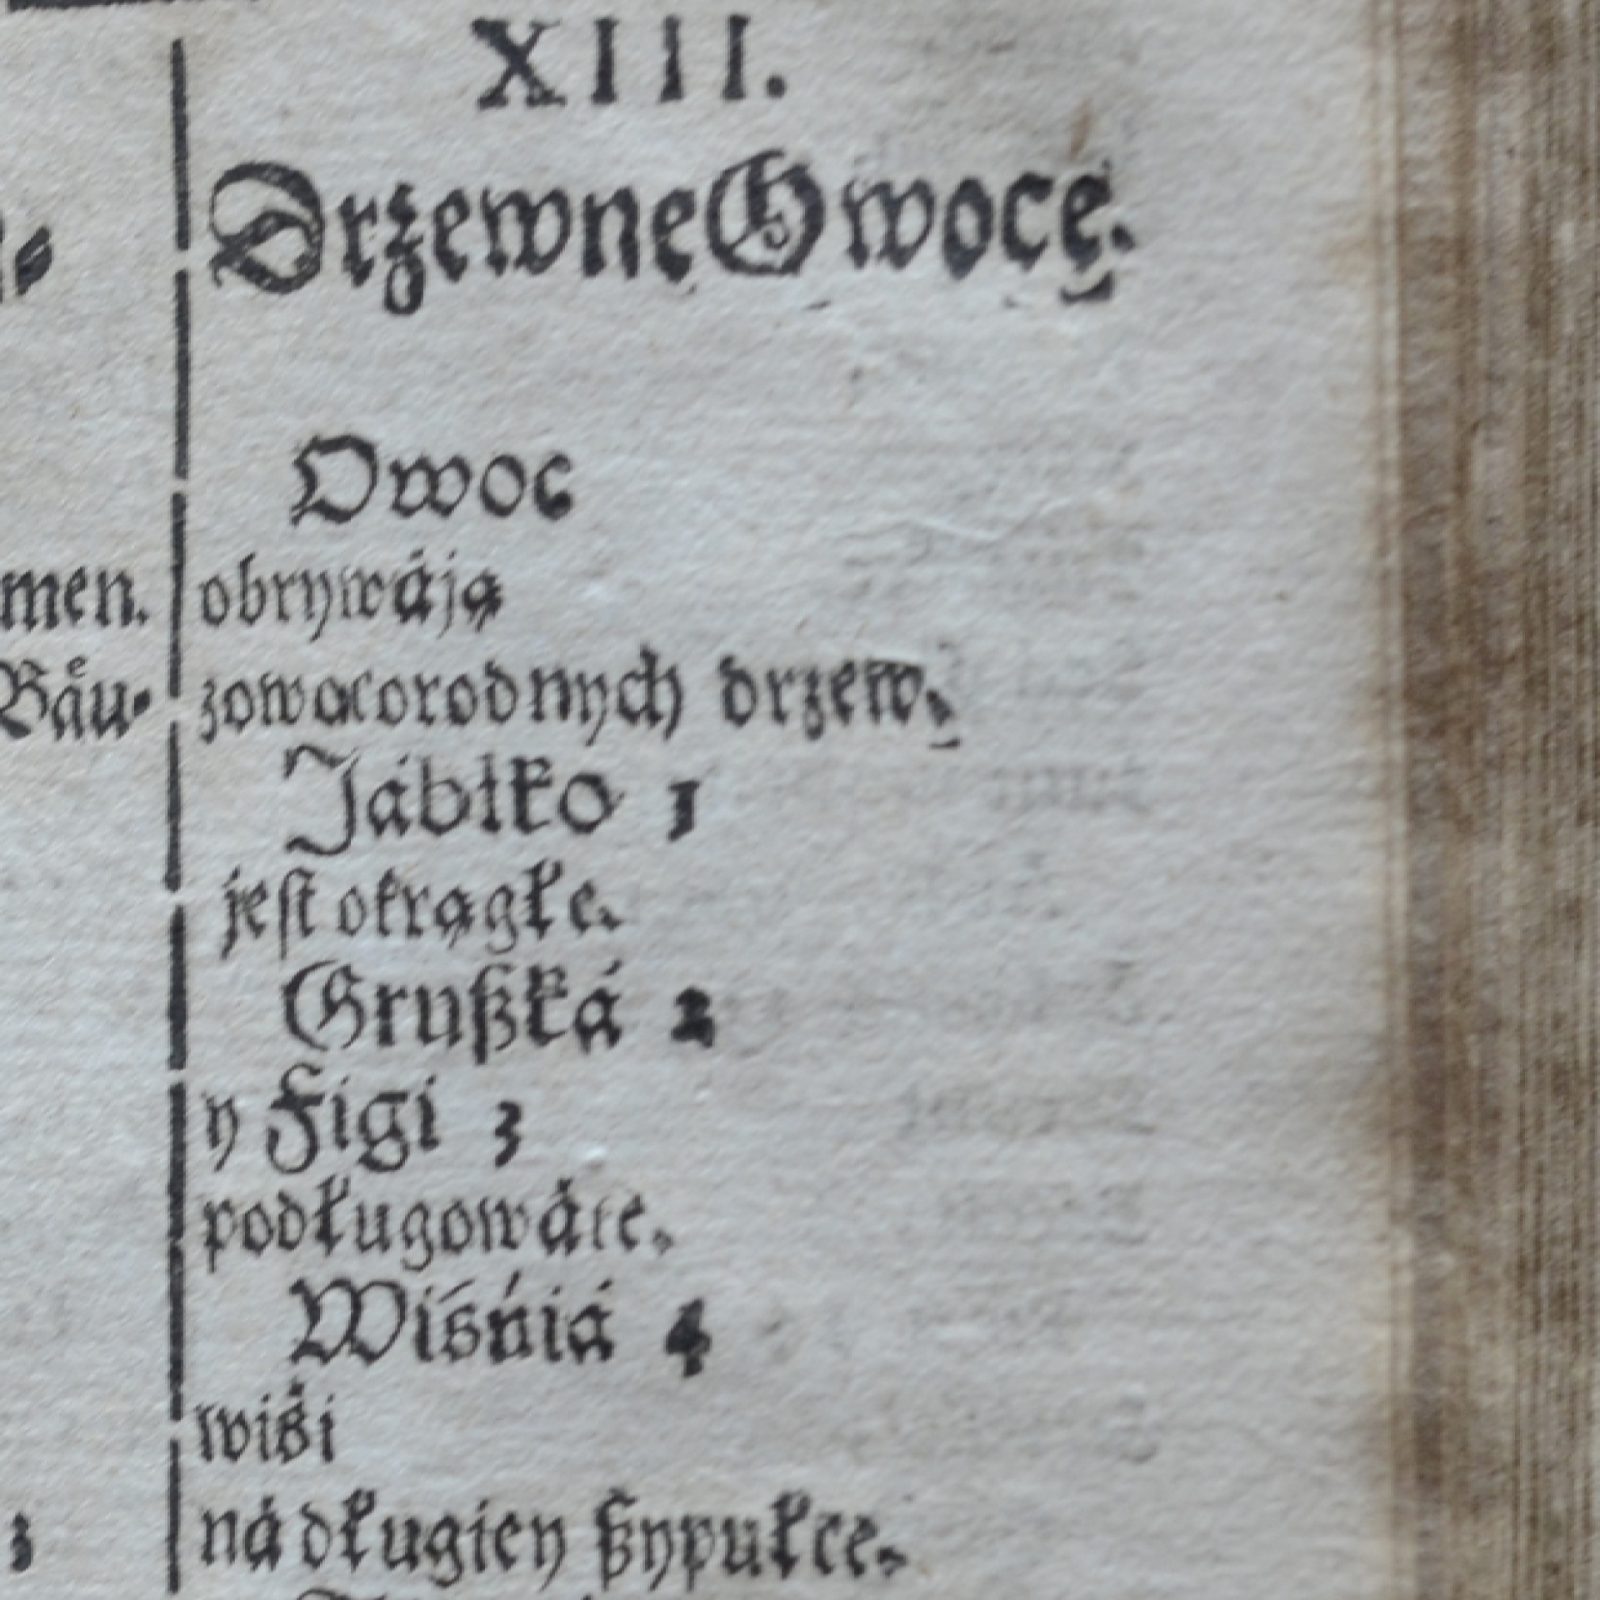 XIII.
Drzewnę Owocę.
Owoc
men. obrywáją
Bäu- zowocorodnych drzew,
Jábłko 1
jest okrągłe.
Grußká 2
y Figi 3
podługowáte.
Wiśńiá 4
wiśi
3 ná długiey ßypułce.